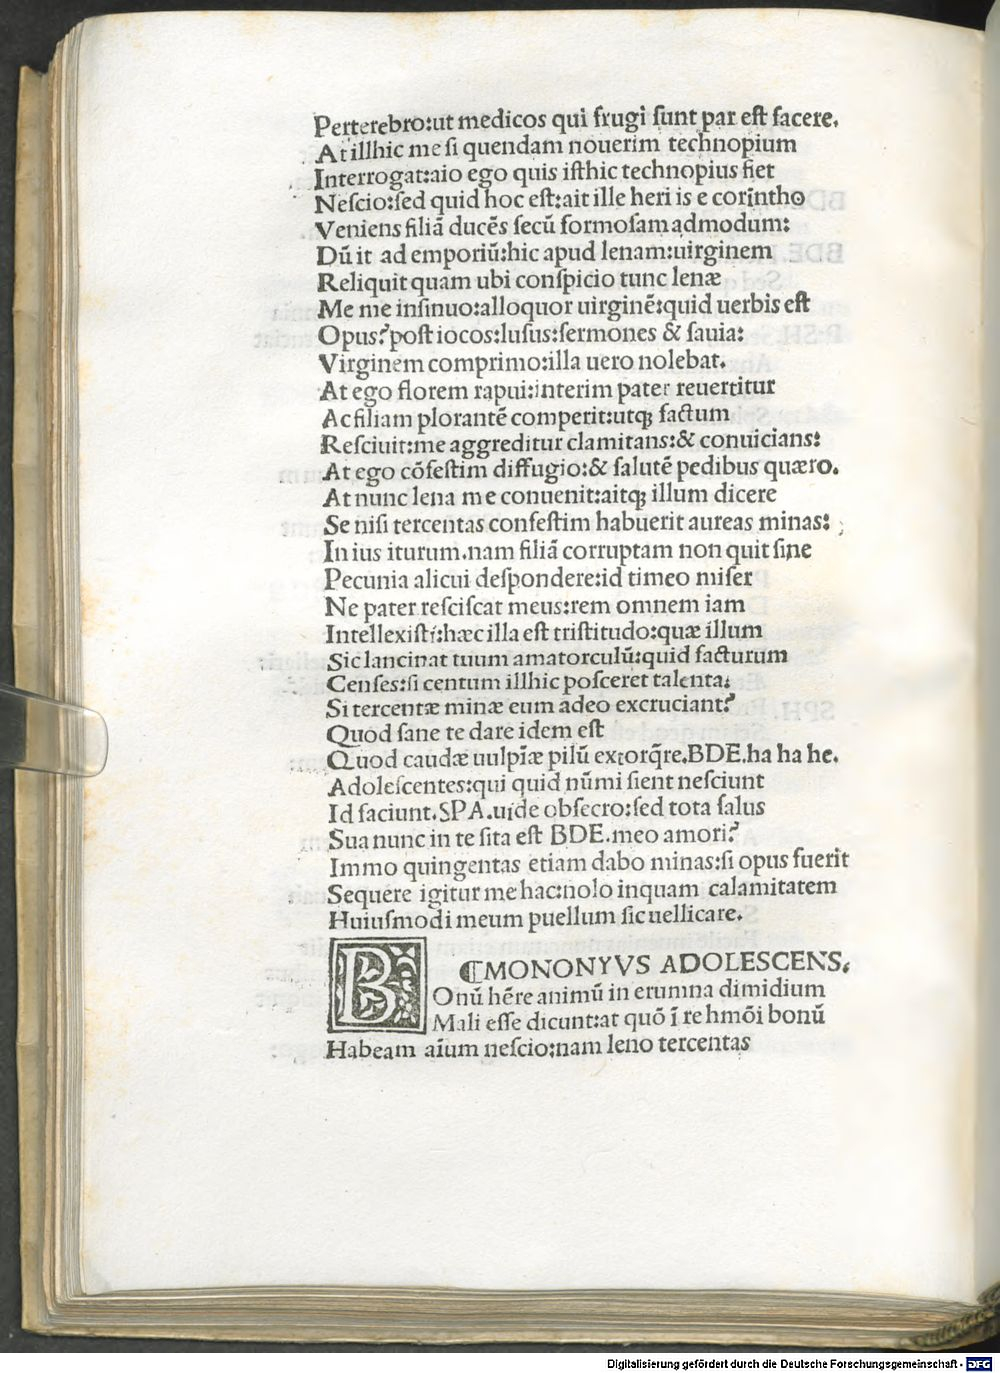 Perterebro:ut medicos qui frugi sunt par est facere.
At illhic me si quendam nouerim technopium
Interrogat:aio ego quis isthic technopius fiet
Nescio:sed quid hoc est:ait ille heri is e corintho
Veniens filiā ducēs secū formosam admodum:
Dū it ad emporiū:hic apud lenam:uirginem
Reliquit quam ubi conspicio tunc lenæ
Me me insinuo:alloquor uirginē:quid uerbis est
Opus?post iocos:lusus:sermones & sauia:
Virginem comprimo:illa uero nolebat.
At ego florem rapui:interim pater reuertitur
Ac filiam plorantē comperit:utqꝫ factum
Resciuit:me aggreditur clamitans:& conuicians:
At ego cōfestim diffugio:& salutē pedibus quæro.
At nunc lena me conuenit:aitqꝫ illum dicere
Se nisi tercentas confestim habuerit aureas minas:
In ius iturum.nam filiā corruptam non quit sine
Pecunia alicui despondere:id timeo miser
Ne pater resciscat meus:rem omnem iam
Intellexisti:hæc illa est tristitudo:quæ illum
Sic lancinat tuum amatorculū:quid facturum
Censes:si centum illhic posceret talenta:
Si tercentæ minæ eum adeo excruciant?
Quod sane te dare idem est
Quod caudæ uulpīæ pilū extorq̄re.BDE.ha ha he.
Adolescentes:qui quid nūmi sient nesciunt
Id faciunt.SPA.uide obsecro:sed tota salus
Sua nunc in te sita est BDE.meo amori?
Immo quingentas etiam dabo minas:si opus fuerit
Sequere igitur me hac:nolo inquam calamitatem
Huiusmodi meum puellum sic uellicare.
¶MONONYVS ADOLESCENS.
BOnū hēre animū in erumna dimidium
Mali esse dicunt:at quō ī re hmōi bonū
Habeam aīum nescio:nam leno tercentas
Digitalisierung gefördert durch die Deutsche Forschungsgemeinschaft - DFG